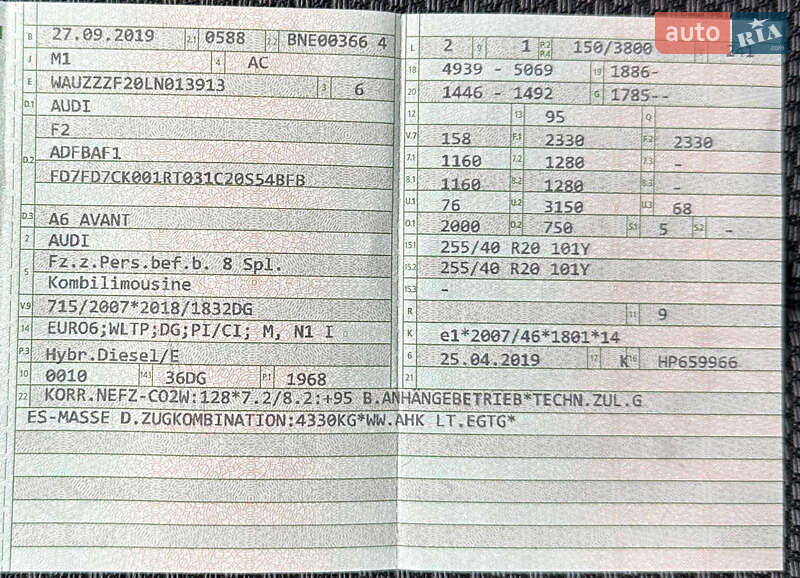 B 27.09.2019 2.1 0588 2.2 BNE00366 4
J M1 4 AC
E WAUZZZF20LN013913 3 6
D.1 AUDI
F2
D.2 ADFBAF1
FD7FD7CK001RT031C20S54BFB
D.3 A6 AVANT
2 AUDI
5 Fz.z.Pers.bef.b. 8 Spl.
Kombilimousine
V.9 715/2007*2018/1832DG
14 EURO6;WLTP;DG;PI/CI; M, N1 I
P.3 Hybr.Diesel/E
10 0010 14.1 36DG P.1 1968
L 2 9 1 P.2 P.4 150/3800
18 4939 - 5069 19 1886-
20 1446 - 1492 G 1785--
12 13 95 Q
V.7 158 F.1 2330 F.2 2330
7.1 1160 7.2 1280 7.3 -
8.1 1160 8.2 1280 8.3 -
U.1 76 U.2 3150 U.3 68
O.1 2000 O.2 750 S.1 5 S.2 -
15.1 255/40 R20 101Y
15.2 255/40 R20 101Y
15.3 -
R 11 9
K e1*2007/46*1801*14
6 25.04.2019 17 K 16 HP659966
21
22 KORR.NEFZ-CO2W:128*7.2/8.2:+95 B.ANHÄNGEBETRIEB*TECHN.ZUL.G
ES-MASSE D.ZUGKOMBINATION:4330KG*WW.AHK LT.EGTG*
auto RIA .com